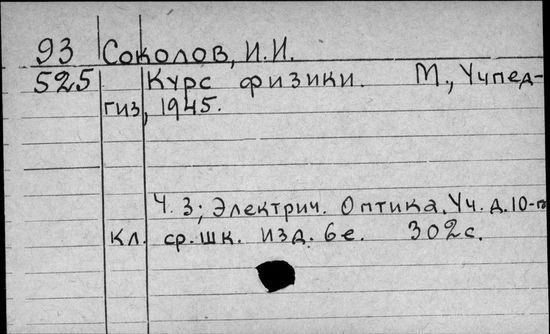 93 Соколов, И.И.
525 Курс физики. М., Учпед-
гиз, 1945.
Ч. 3; Электрич. Оптика. Уч. д. 10-го
кл. ср. шк. изд. 6е. 302 с.